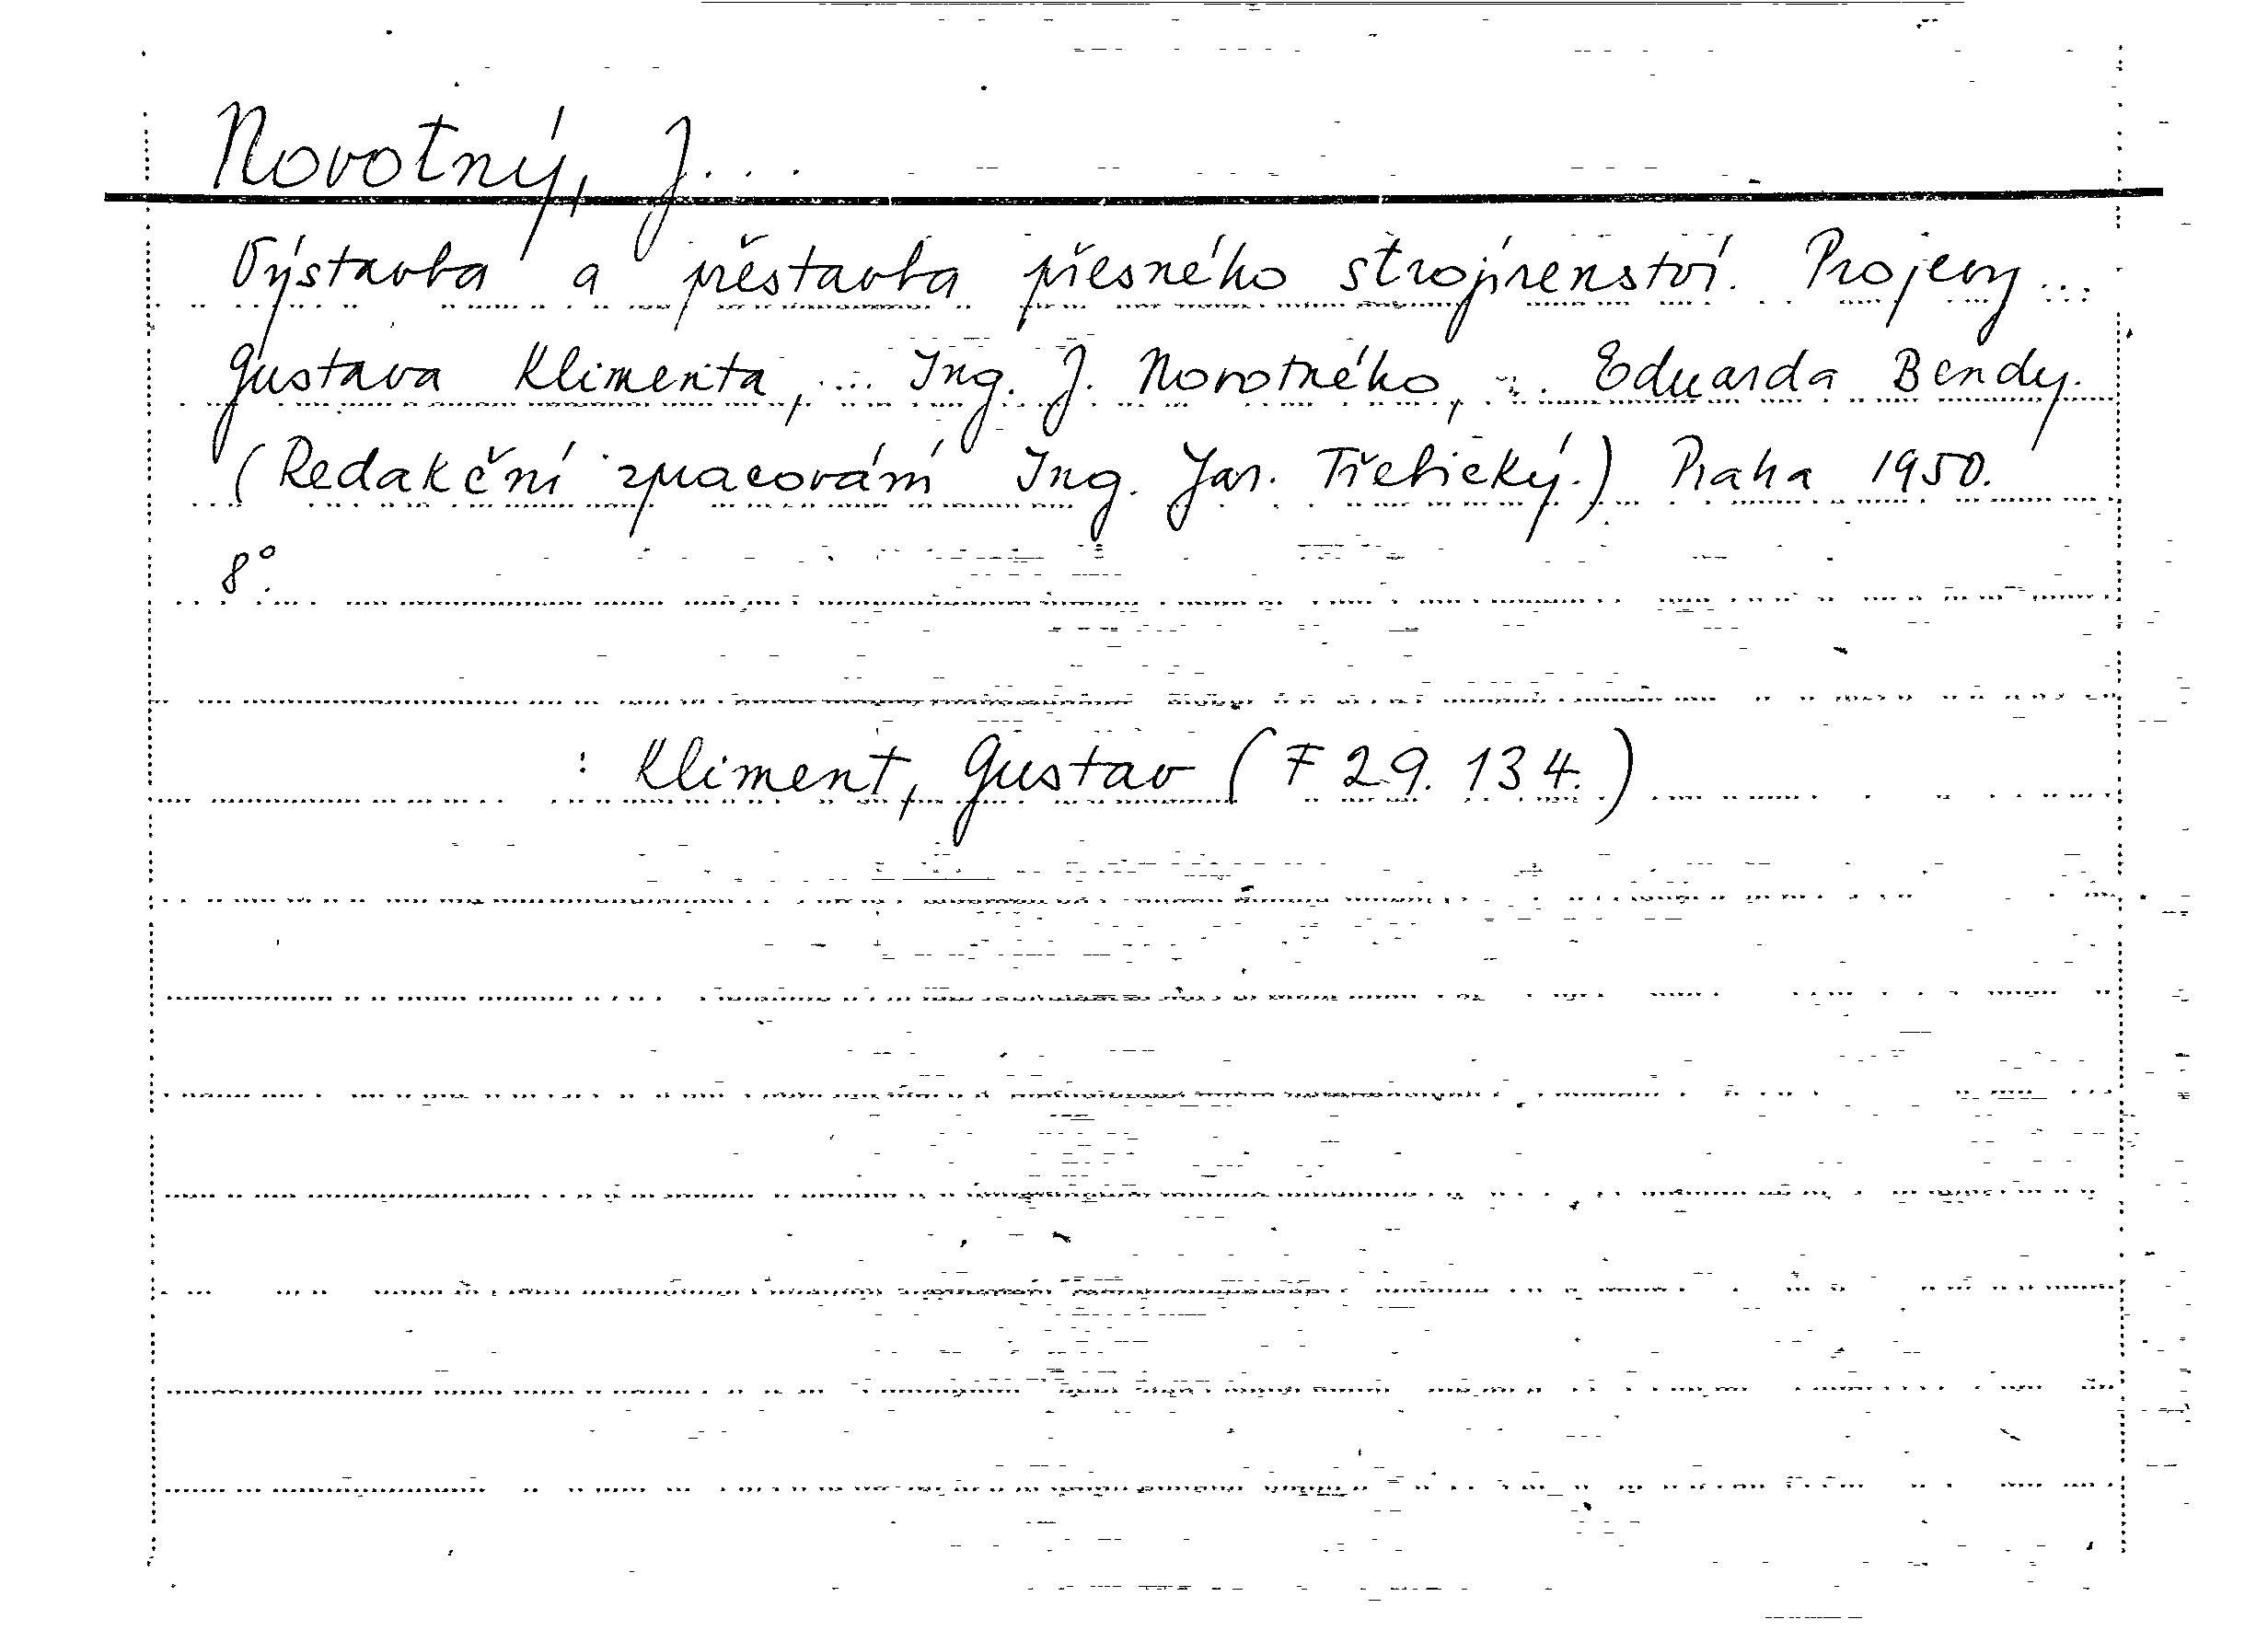 Novotný, J...
Výstavba a přestavba přesného strojírenství. Projevy ...
Gustava Klimenta, ... Ing. J. Novotného, ... Eduarda Bendy.
(Redakční zpracování Ing. Jar. Třebický.) Praha 1950.
8°.
: Kliment, Gustav (F 29.134.)